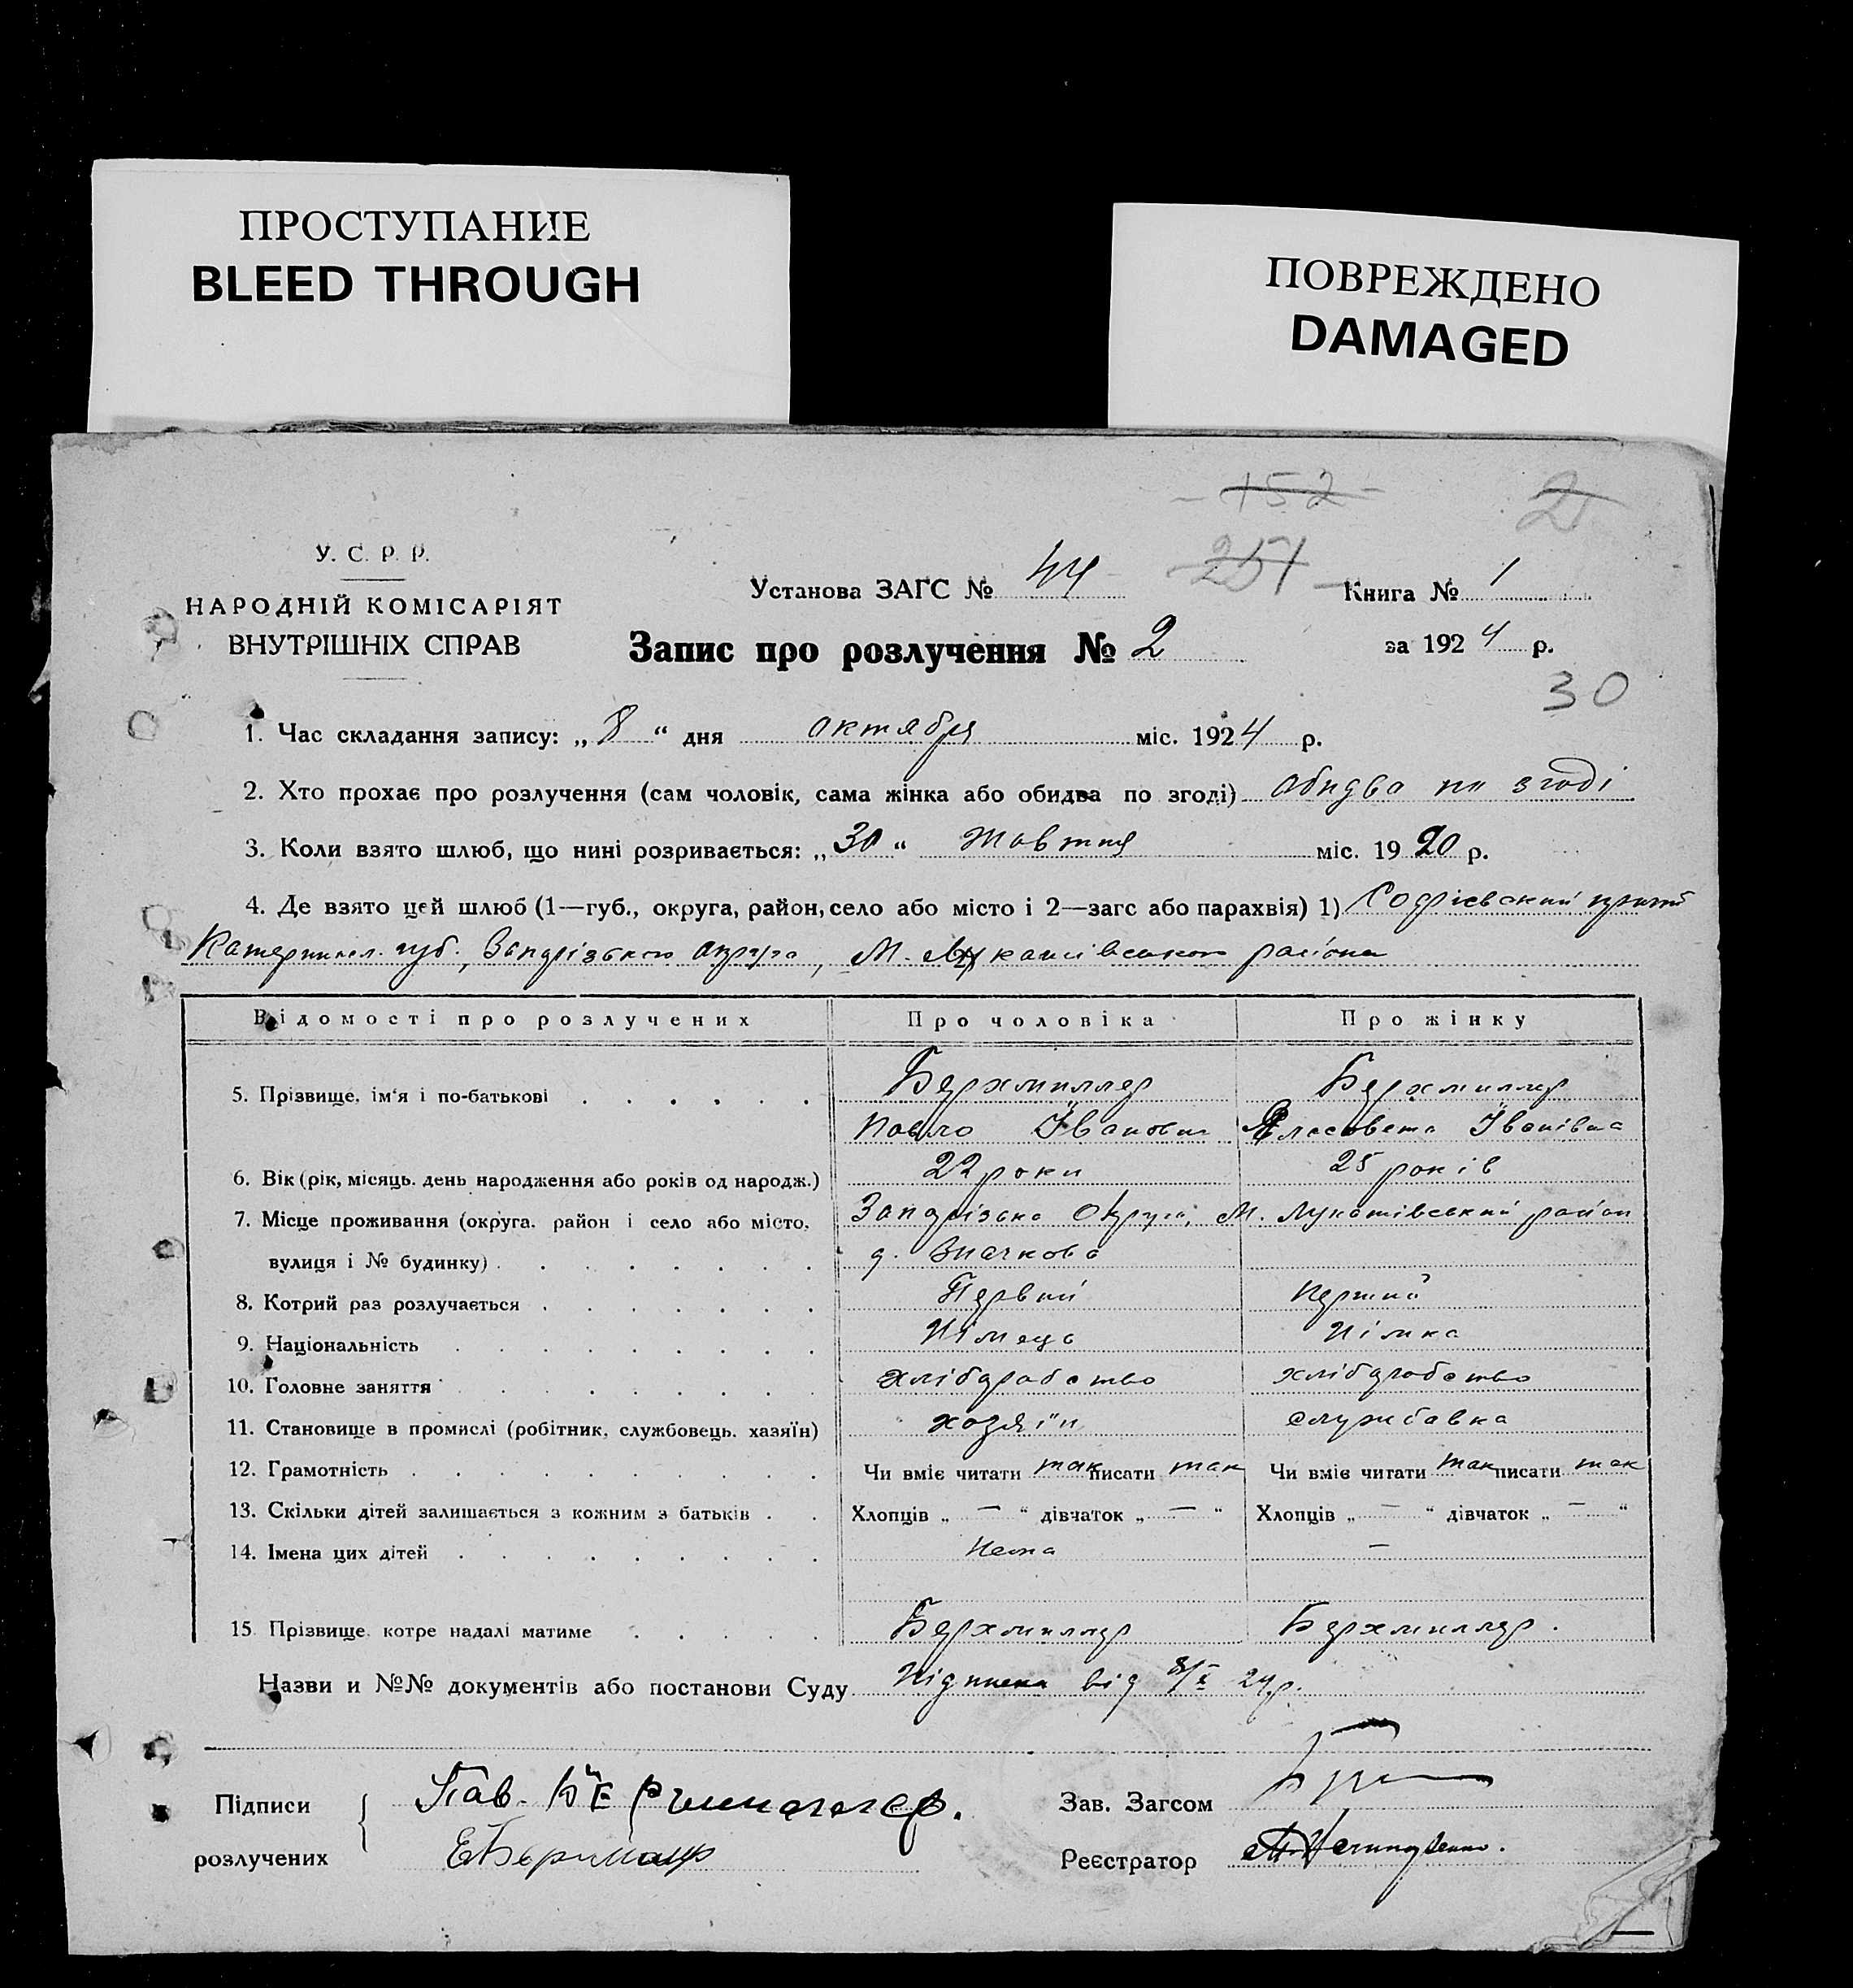 ПРОСТУПАНИЕ
BLEED THROUGH
ПОВРЕЖДЕНО
DAMAGED
152
2
251
У. С. Р. Р.
НАРОДНІЙ КОМІСАРІЯТ
ВНУТРІШНІХ СПРАВ
Установа ЗАГС № 44
Книга № 1
Запис про розлучення № 2
за 1924 р.
30
1. Час складання запису: „8“ дня октября міс. 1924 р.
2. Хто прохає про розлучення (сам чоловік, сама жінка або обидва по згоді) обидва по згоді
3. Коли взято шлюб, що нині розривається: „30“ Жовтня міс. 1920 р.
4. Де взято цей шлюб (1—губ., округа, район, село або місто і 2—загс або парахвія) 1) Софіевский
Катеринос. губ., Запорізького округа, М. Лукашівського району
Відомості про розлучених Про чоловіка Про жінку
5. Прізвище, ім'я і по-батькові Берхмиллер Берхмиллер
Павло Іванович Єлисовета Іванівна
6. Вік (рік, місяць, день народження або років од народж.) 22 роки 25 років
7. Місце проживання (округа, район і село або місто, Запорізька Округа, М. Лукашівський район
вулиця і № будинку) д.
8. Котрий раз розлучається Первий Перший
9. Національність Німець Німка
10. Головне заняття хліборобство хліборобство
11. Становище в промислі (робітник, службовець, хазяїн) хозяїн
12. Грамотність Чи вміє читати так писати так Чи вміє читати так писати так
13. Скільки дітей залишається з кожним з батьків Хлопців „ — “ дівчаток „ — “ Хлопців „ — “ дівчаток „ — “
14. Імена цих дітей Нема —
15. Прізвище, котре надалі матиме Берхмиллер Берхмиллер.
Назви и №№ документів або постанови Суду Підписка від 8/X 24 р.
Підписи
розлучених
Пав.
Зав. Загсом
Реєстратор